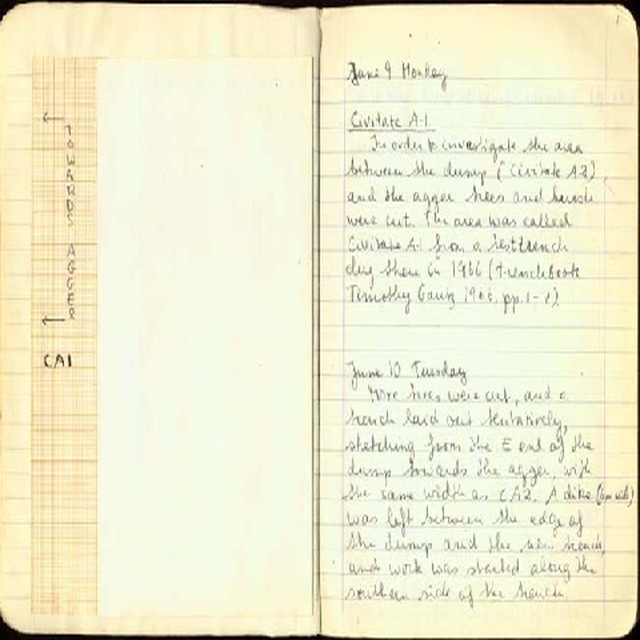 ← TOWARDS AGGER ←
CA1
June 9 Monday
Civitate A-1
In order to investigate the area
between the dump (Civitate A2)
and the agger trees and brush
were cut. The area was called
Civitate A-1 from a test trench
dug there in 1966 (trenchbook
Timothy Gantz 1966, pp. 1-
June 10 Tuesday
More trees were cut, and a
trench laid out tentatively,
stretching from the E end of the
dump towards the agger, with
the same width as CA2. A
was left between the edge of
the dump and the new trench,
and work was started along the
southern side of the trench.